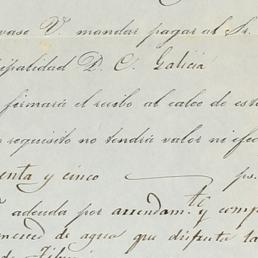 vase V. mandar pagar al Sr.
ipalidad D. C. Galicia
firmará el recibo al calce de este
requisito no tendrá valor ni efec
enta y cinco ps.
adeuda por arrendam.to y comp
merced de agua que disfruta la
de